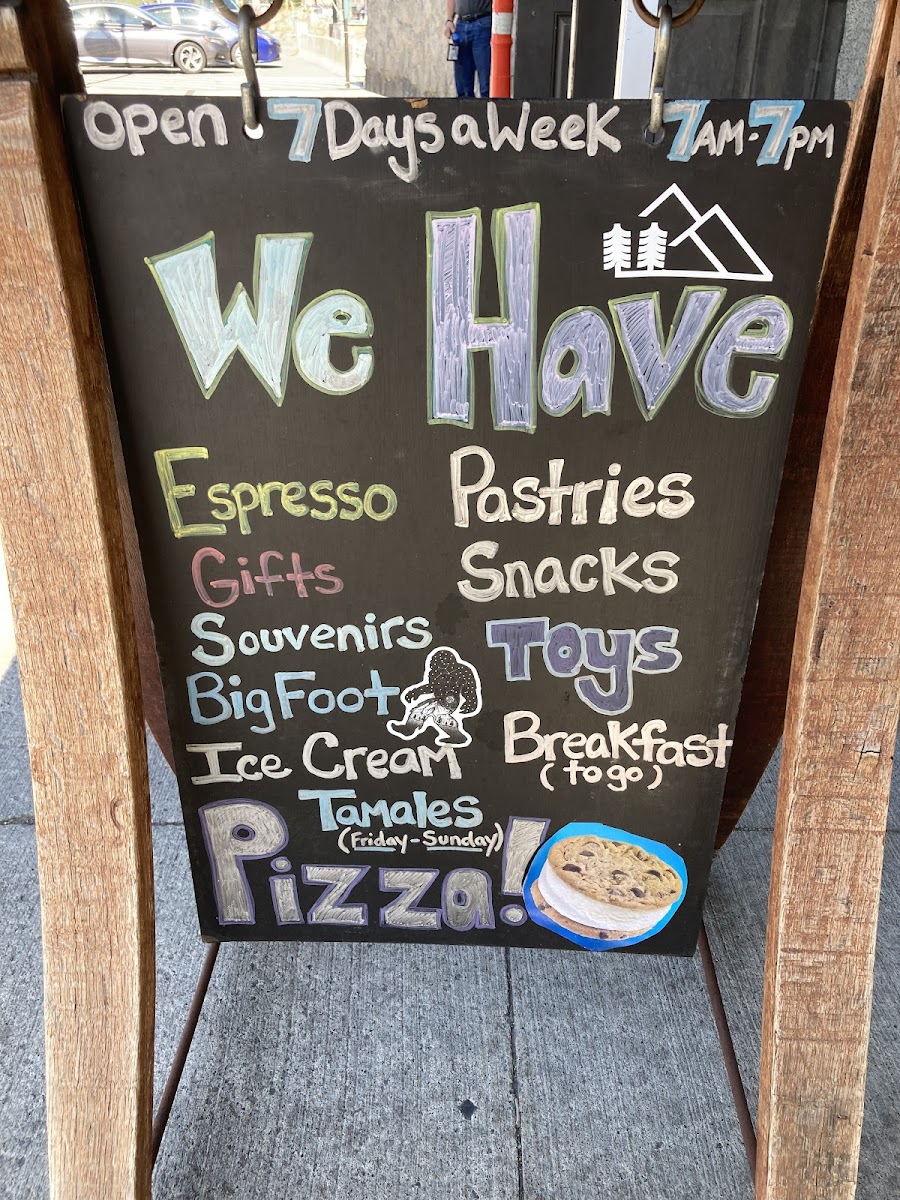 Open 7 Days a Week 7AM-7pm
We Have
Espresso Pastries
Gifts Snacks
Souvenirs Toys
BigFoot
Ice Cream Breakfast
(to go)
Tamales
(Friday-Sunday)
Pizza!